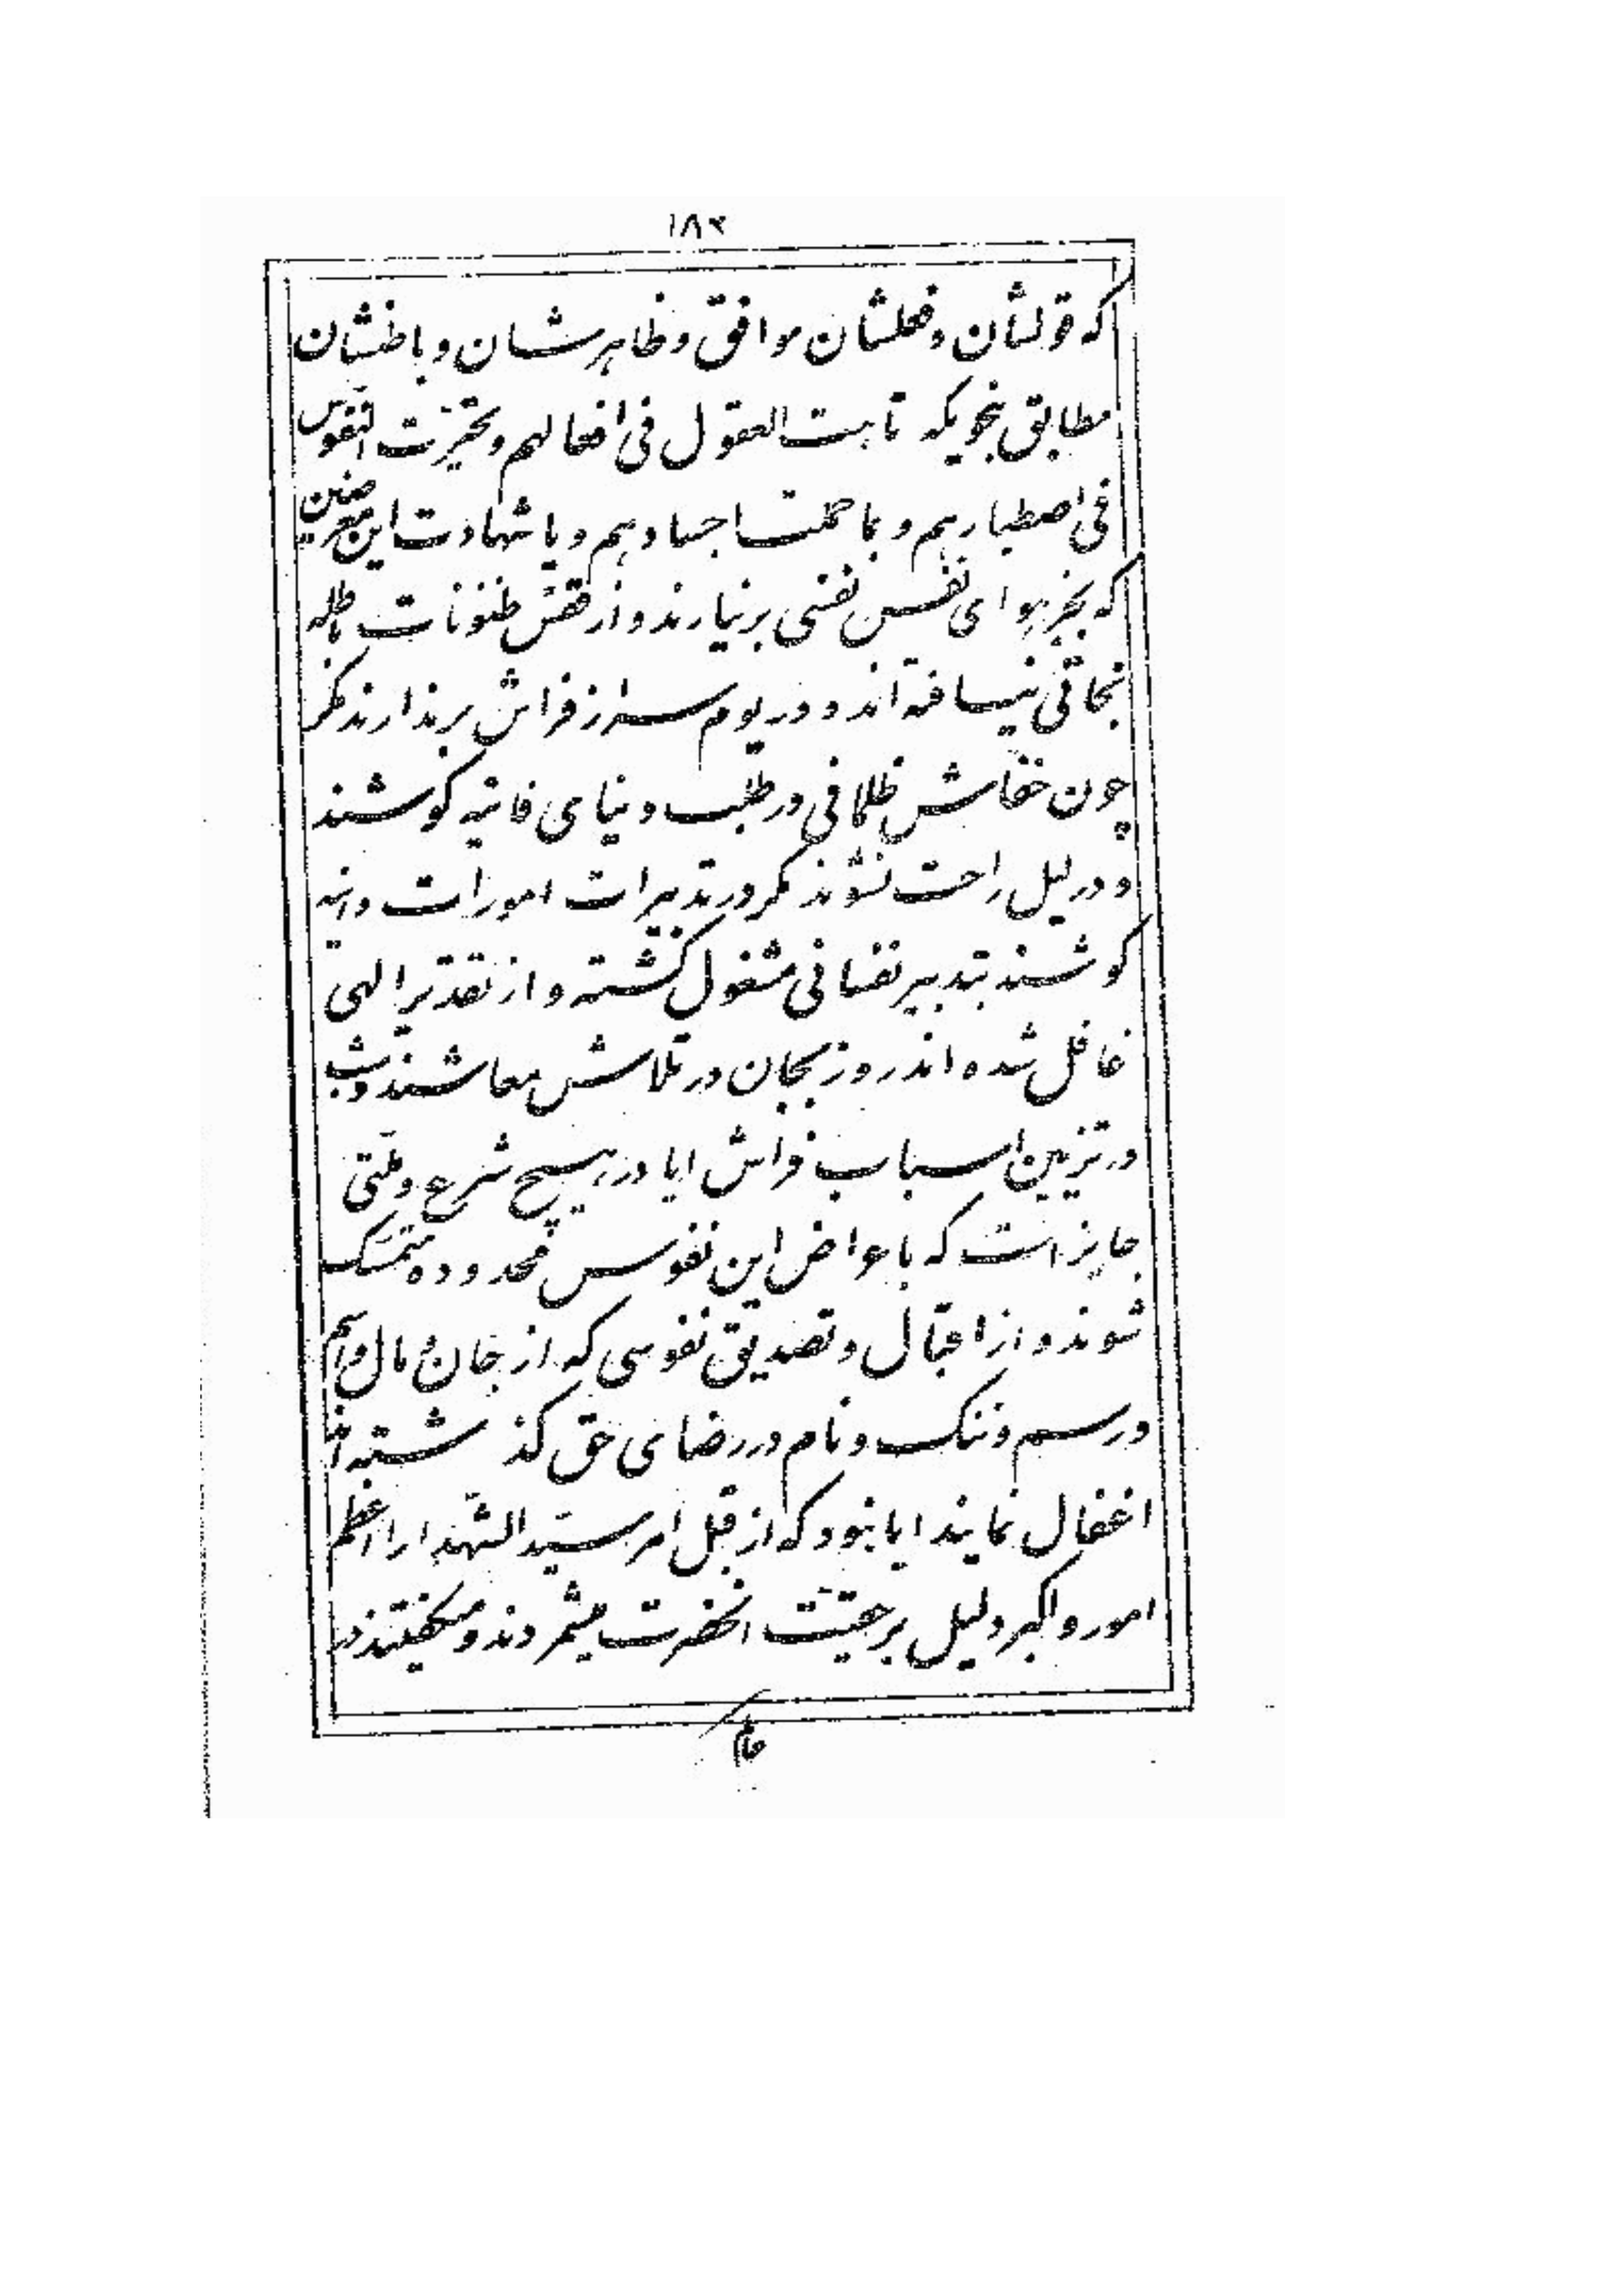 ۱۸۲
که قولشان و فعلشان موافق و ظاهرشان و باطنشان
مطابق بنحویکه تاهت العقول فی افعالهم و تحیّرت النّفوس
فی اصطبارهم و بما حملت اجسادهم و یا شهادت این معرضین
که بجز هوای نفس نفسی برنیارند و از قفس ظنونات باطله
نجاتی نیافته‌اند و در یوم سر از فراش برندارند مگر
چون خفّاش ظلمانی در طلب دنیای فانیه کوشند
و در لیل راحت نشوند مگر در تدبیرات امورات دانیه
کوشند بتدبیر نفسانی مشغول گشته و از تقدیر الهی
غافل شده‌اند روز بجان در تلاش معاشند و شب
در تزیین اسباب فراش ایا در هیچ شرع و ملّتی
جایز است که باعراض این نفوس محدوده متمسّک
شوند و از اقبال و تصدیق نفوسی که از جان و مال و اسم
و رسم و ننگ و نام در رضای حق گذشته‌اند
اغفال نمایند ایا نبود که از قبل امر سیّد الشّهدا را اعظم
امور و اکبر دلیل بر حقیّت انحضرت میشمردند و میگفتند در
عالم